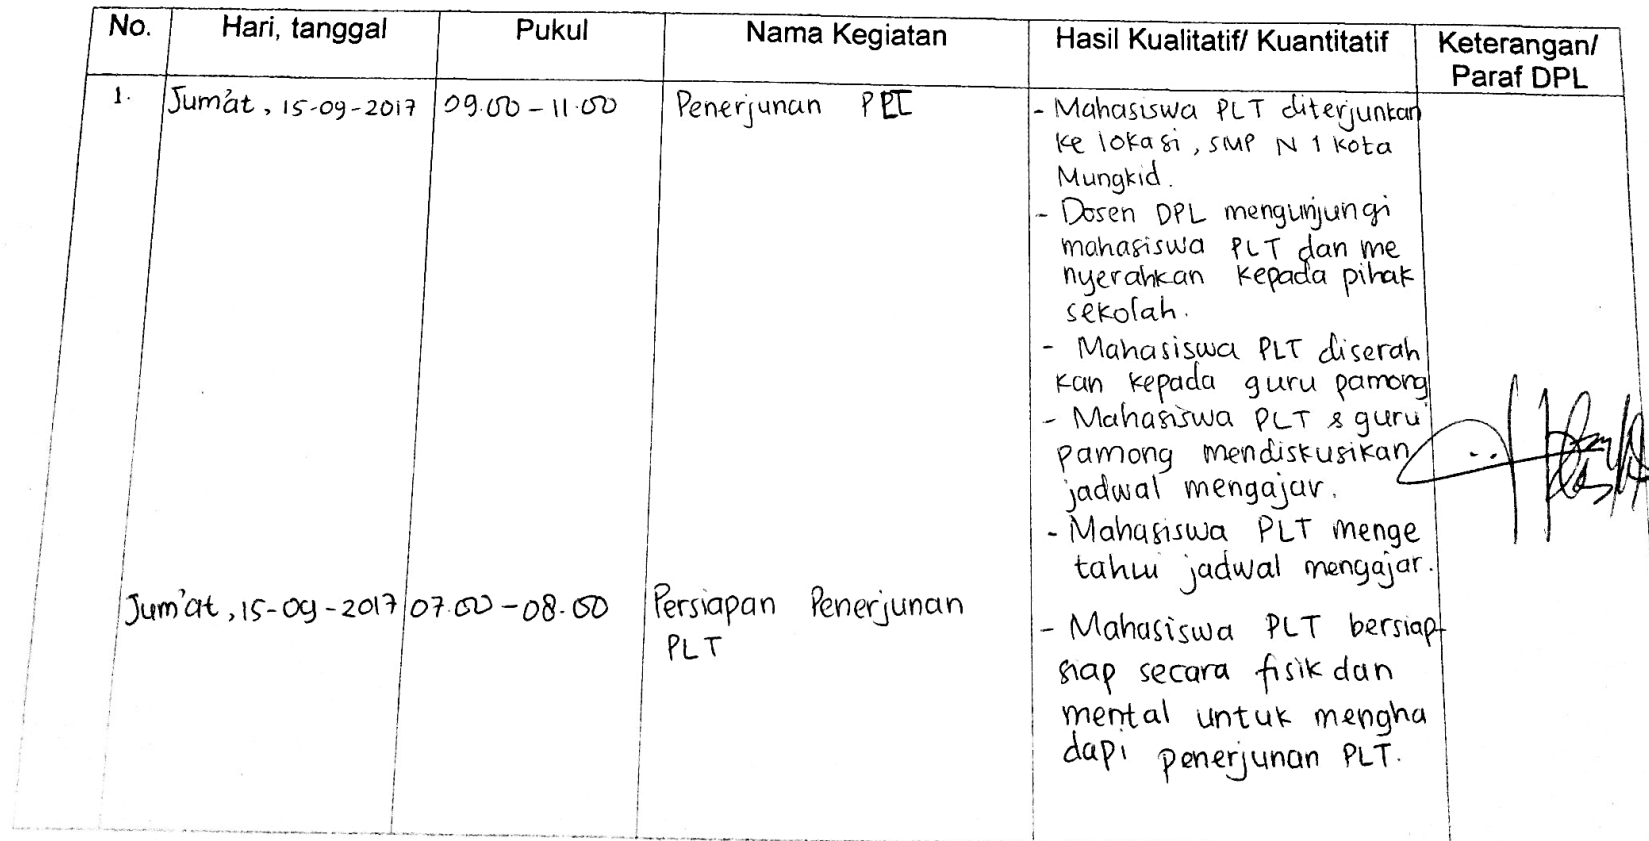 No. Hari, tanggal Pukul Nama Kegiatan Hasil Kualitatif/ Kuantitatif Keterangan/
Paraf DPL
1. Jum'at, 15-09-2017 09.00 - 11.00 Penerjunan - Mahasiswa PLT diterjunkan
ke lokasi, SMP N 1 Kota
Mungkid.
- Dosen DPL mengunjungi
mahasiswa PLT dan me
nyerahkan kepada pihak
sekolah.
- Mahasiswa PLT diserah
kan kepada guru pamong
- Mahasiswa PLT & guru
pamong mendiskusikan
jadwal mengajar.
- Mahasiswa PLT menge
tahui jadwal mengajar.
Jum'at, 15-09-2017 07.00 - 08.00 Persiapan Penerjunan
PLT
- Mahasiswa PLT bersiap-
siap secara fisik dan
mental untuk mengha
dapi penerjunan PLT.